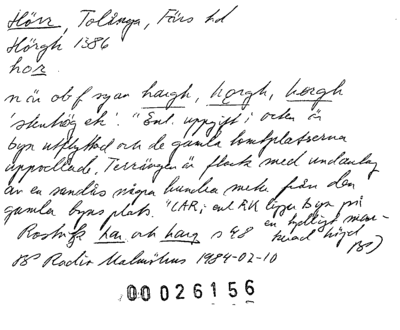 Hörr, Tolånga, Färs hd
Hörgh 1386
hör
n är obf sgan hargh, hørgh, hørgh
'stenhög etc'. "Enl. uppgift i orten är
byn utflyttad och de gamla tomtplatserna
uppodlad. Terrängen är flack med undantag
av en sandås några hundra meter från den
gamla byns plats." LAR; enl RK ligger byn på
en tydligt markerad höjd
Rostvik har och harg s 48
BP Radio Malmöhus 1984-02-10
00026156